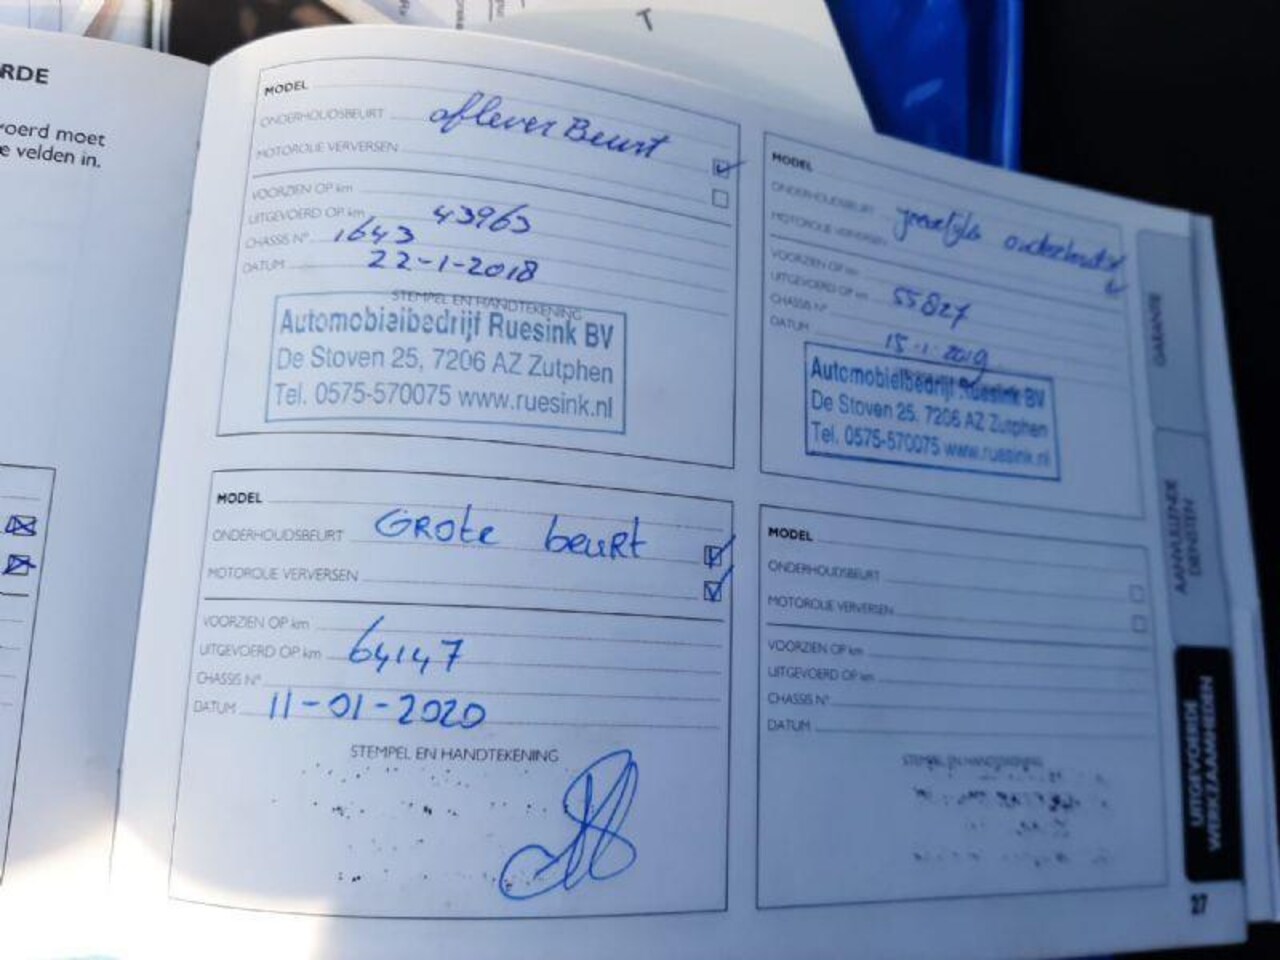 RDE
oerd moet
e velden in.
MODEL
ONDERHOUDSBEURT afleverBeurt
MOTOROLIE VERVERSEN
VOORZIEN OP km
UITGEVOERD OP km 43963
CHASSIS N° 1643
DATUM 22-1-2018
STEMPEL EN HANDTEKENING
Automobielbedrijf Ruesink BV
De Stoven 25, 7206 AZ Zutphen
Tel. 0575-570075 www.ruesink.nl
MODEL
ONDERHOUDSBEURT jaarlijks onderhoud
MOTOROLIE VERVERSEN
VOORZIEN OP km
UITGEVOERD OP km 55827
CHASSIS N°
DATUM 15-1-2019
Automobielbedrijf Ruesink BV
De Stoven 25, 7206 AZ Zutphen
Tel. 0575-570075 www.ruesink.nl
MODEL
ONDERHOUDSBEURT GROte beuRt
MOTOROLIE VERVERSEN
VOORZIEN OP km
UITGEVOERD OP km 64147
CHASSIS N°
DATUM 11-01-2020
STEMPEL EN HANDTEKENING
MODEL
ONDERHOUDSBEURT
MOTOROLIE VERVERSEN
VOORZIEN OP km
UITGEVOERD OP km
CHASSIS N°
DATUM
STEMPEL EN HANDTEKENING
GARANTIE
AANVULLENDE
DIENSTEN
UITGEVOERDE
WERKZAAMHEDEN
27